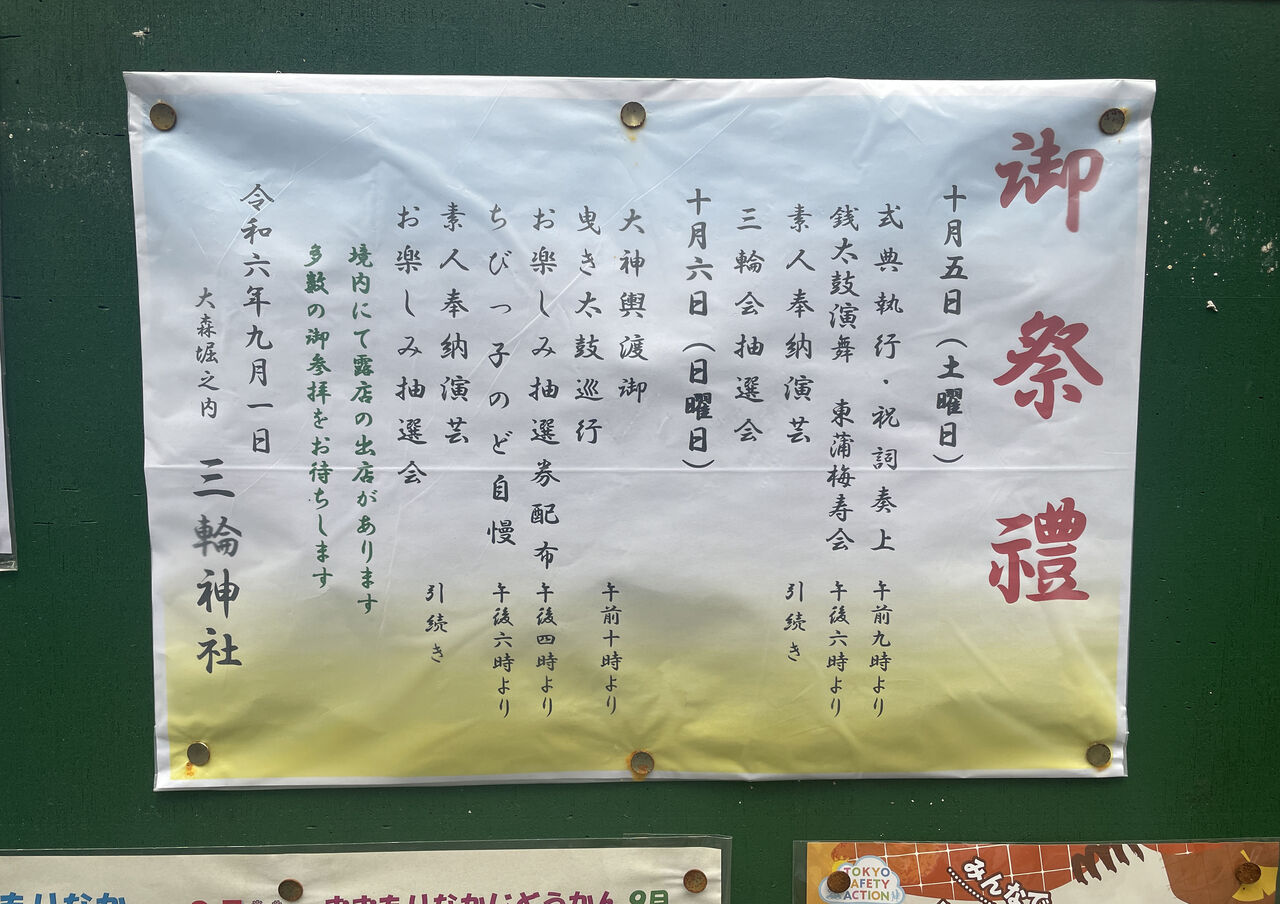 御祭禮
十月五日（土曜日）
式典執行・祝詞奏上 午前九時より
銭太鼓演舞 東蒲梅寿会 午後六時より
素人奉納演芸 引続き
三輪会抽選会
十月六日（日曜日）
大神輿渡御 午前十時より
曳き太鼓巡行
お楽しみ抽選券配布 午後四時より
ちびっ子のど自慢 午後六時より
素人奉納演芸 引続き
お楽しみ抽選会
境内にて露店の出店があります
多数の御参拝をお待ちします
令和六年九月一日
大森堀之内 三輪神社
TOKYO
SAFETY
ACTION
みんなで
9月